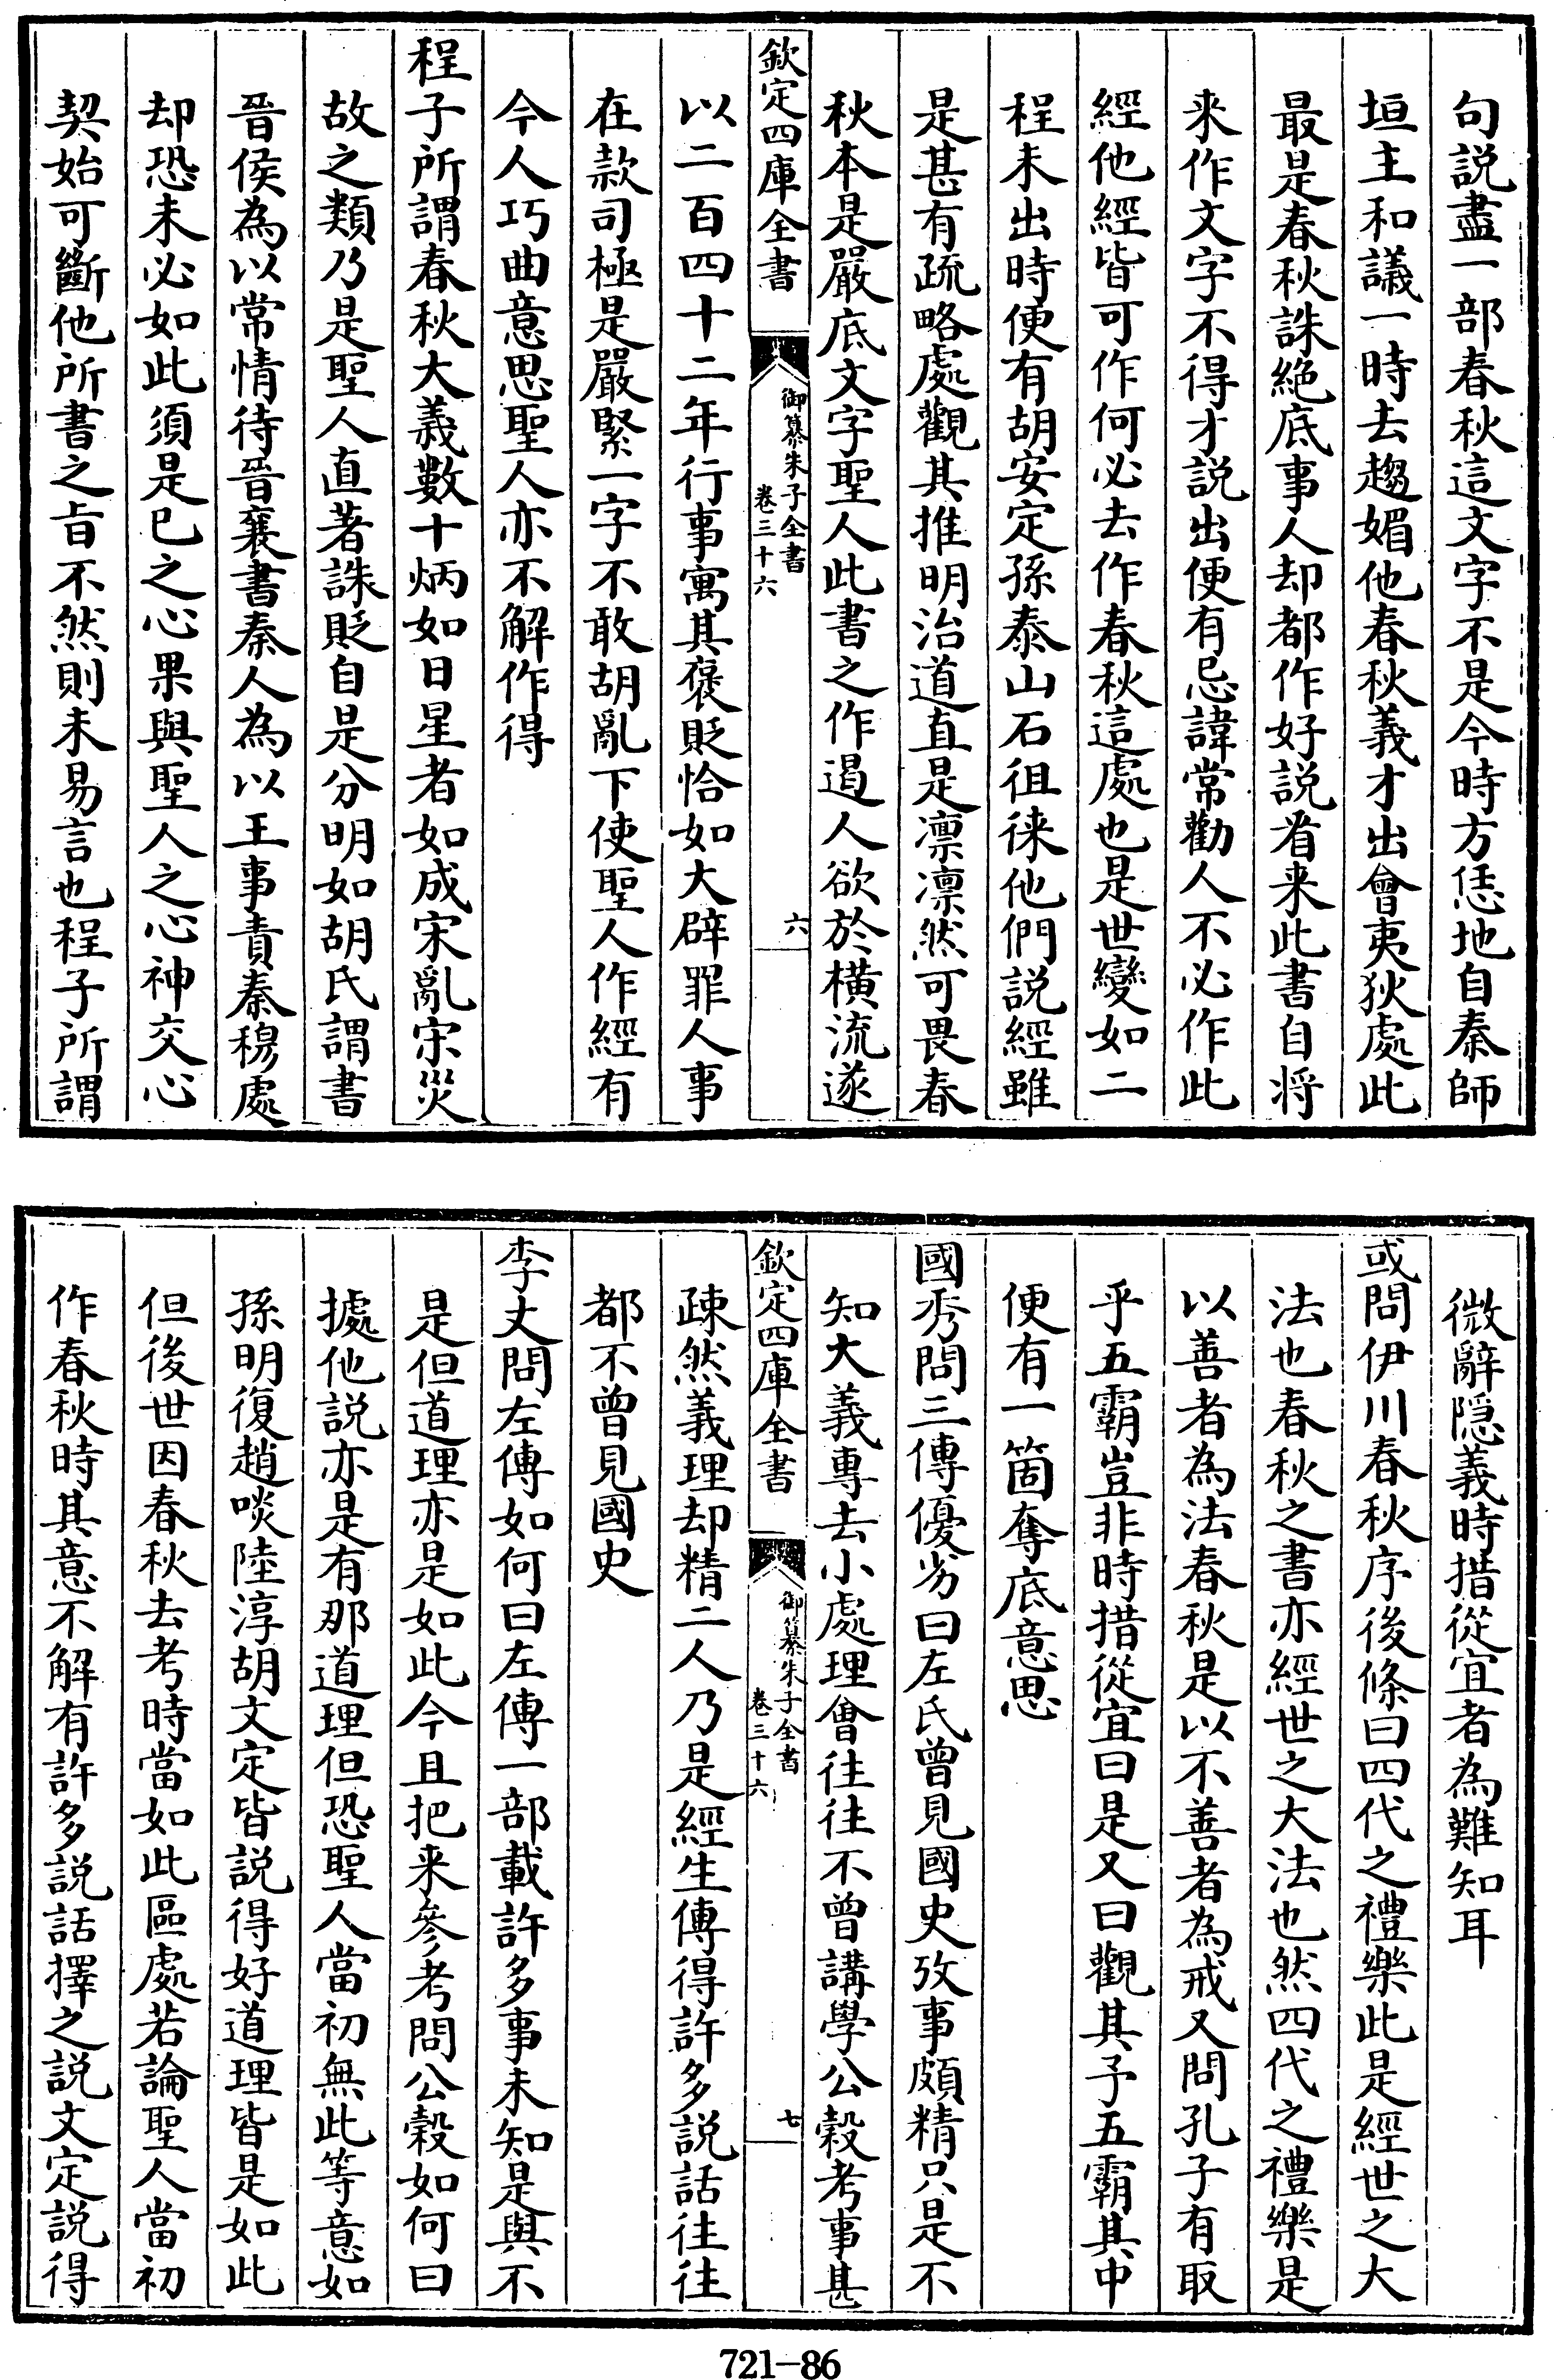 句説盡一部春秋這文字不是今時方恁地自秦師
垣主和議一時去趨媚他春秋義才出會夷狄處此
最是春秋誅絶底事人却都作好説看来此書自将
来作文字不得才説出便有忌諱常勸人不必作此
經他經皆可作何必去作春秋這處也是世變如二
程未出時便有胡安定孫泰山石徂徠他們説經雖
是甚有疏略處觀其推明治道直是凛凛然可畏春
秋本是嚴底文字聖人此書之作遏人欲於横流遂
欽定四庫全書
御纂朱子全書
卷三十六
六
以二百四十二年行事寓其褒貶恰如大辟罪人事
在款司極是嚴緊一字不敢胡亂下使聖人作經有
今人巧曲意思聖人亦不解作得
程子所謂春秋大義數十炳如日星者如成宋亂宋災
故之類乃是聖人直著誅貶自是分明如胡氏謂書
晉侯為以常情待晉襄書秦人為以王事責秦穆處
却恐未必如此須是已之心果與聖人之心神交心
契始可斷他所書之旨不然則未易言也程子所謂
微辭隠義時措從宜者為難知耳
或問伊川春秋序後條曰四代之禮樂此是經世之大
法也春秋之書亦經世之大法也然四代之禮樂是
以善者為法春秋是以不善者為戒又問孔子有取
乎五霸豈非時措從宜曰是又曰觀其予五霸其中
便有一箇奪底意思
國秀問三傳優劣曰左氏曾見國史攷事頗精只是不
知大義專去小處理會往往不曾講學公榖考事甚
欽定四庫全書
御纂朱子全書
卷三十六
七
疎然義理却精二人乃是經生傳得許多説話往往
都不曾見國史
李丈問左傳如何曰左傳一部載許多事未知是與不
是但道理亦是如此今且把来參考問公榖如何曰
據他説亦是有那道理但恐聖人當初無此等意如
孫明復趙啖陸淳胡文定皆説得好道理皆是如此
但後世因春秋去考時當如此區處若論聖人當初
作春秋時其意不解有許多説話擇之説文定説得
721-86